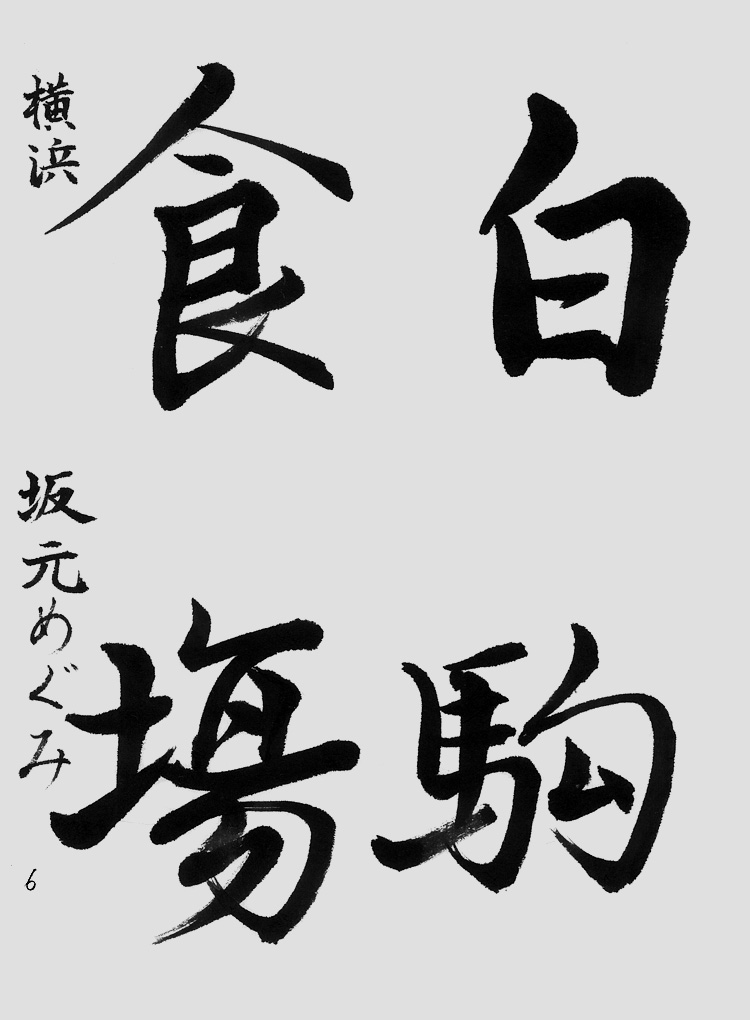 白駒
食場
横浜 坂元めぐみ 6